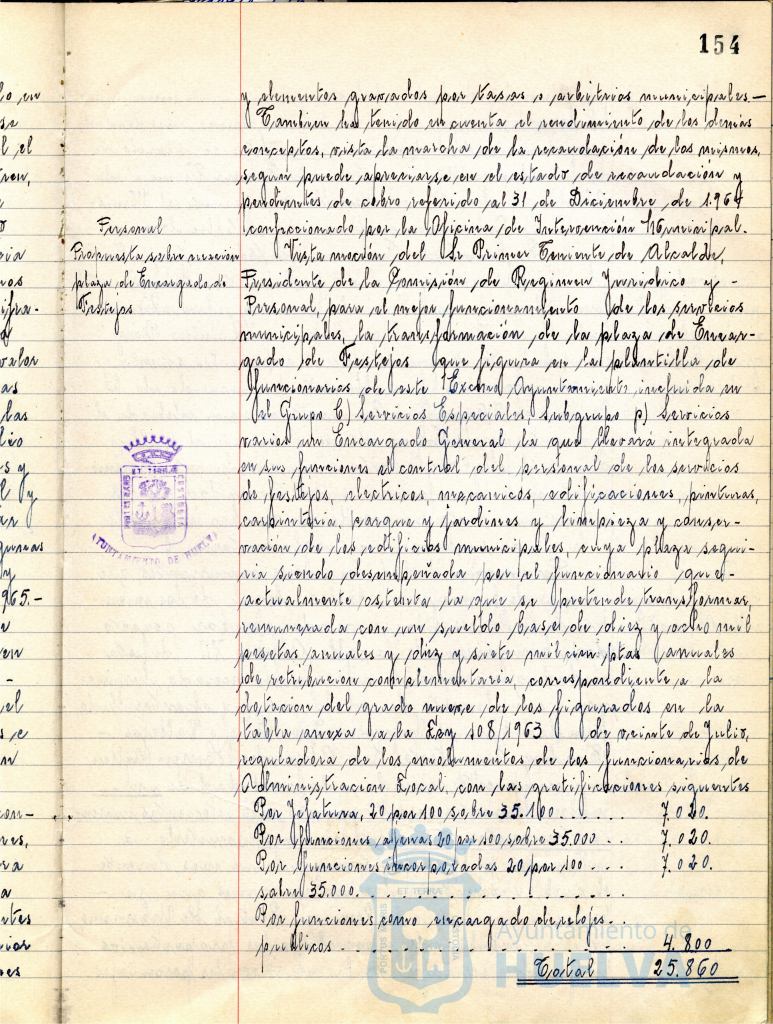 154
y elementos gravados por tasas o arbitrios municipales.—
Tambien ha tenido en cuenta el rendimiento de los demás
conceptos, vista la marcha de la recaudación de los mismos,
segun puede apreciarse en el estado de recaudación y
pendientes de cobro referido al 31 de Diciembre de 1.964
confeccionado por la Oficina de Intervención Municipal.
Personal
Propuesta sobre creación
plaza de Encargado de
Festejos
Vista moción del Sr Primer Teniente de Alcalde,
Presidente de la Comisión de Regimen Juridico y -
Personal, para el mejor funcionamiento de los servicios
municipales, la transformación de la plaza de Encar-
gado de Festejos que figura en la plantilla de
funcionarios de este Excmo Ayuntamiento incluida en
el Grupo C) Servicios Especiales, Subgrupo p) Servicios
varios un Encargado General la que llevará integrada
en sus funciones el control del personal de los servicios
de festejos, electricos, mecanicos, edificaciones, pinturas,
carpinteria, parque y jardines y limpieza y conser-
vación de los edificios municipales, cuya plaza segui-
ria siendo desempeñada por el funcionario que -
actualmente ostenta la que se pretende transformar,
remunerada con un sueldo base de diez y ocho mil
pesetas anuales y diez y siete mil cien ptas anuales
de retribucion complementaria, correspondiente a la
dotacion del grado nueve de los figurados en la
tabla anexa a la Ley 108/1963 de veinte de Julio,
reguladora de los emolumentos de los funcionarios de
Administracion Local, con las gratificaciones siguientes
Por Jefatura, 20 por 100 sobre 35.100 ...... 7.020.
Por funciones ajenas 20 por 100, sobre 35.000 ... 7.020.
Por funciones incorporadas 20 por 100 ... 7.020.
sobre 35.000. ..........
Por funciones como encargado de relojes..
publicos .......... 4.800
Total 25.860
ET TERRÆ
CUSTODIA
PORTUS MARIS
AYUNTAMIENTO DE HUELVA
ET TERRA
Ayuntamiento de
HUELVA